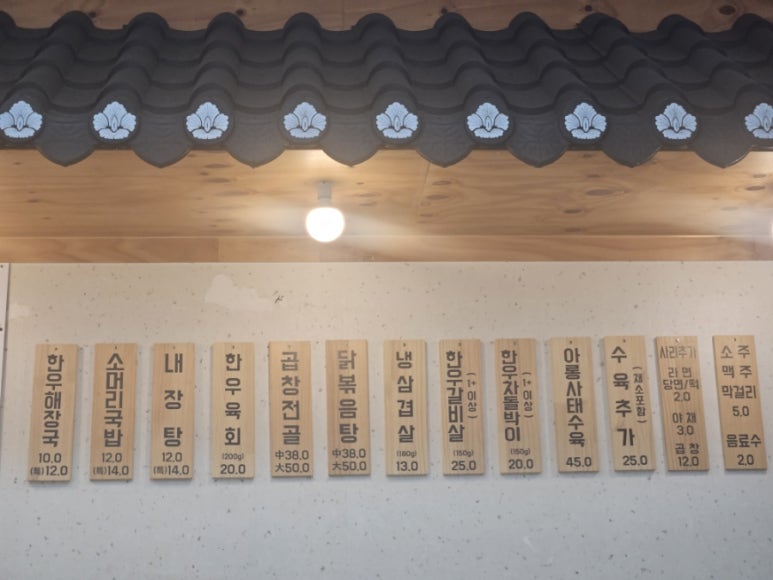 한우해장국
10.0
(特)12.0
소머리국밥
12.0
(特)14.0
내장탕
12.0
(特)14.0
한우육회
(200g)
20.0
곱창전골
中38.0
大50.0
닭볶음탕
中38.0
大50.0
냉삼겹살
(160g)
13.0
한우갈비살
(1+이상)
(150g)
25.0
한우차돌박이
(1+이상)
(150g)
20.0
아롱사태수육
45.0
수육추가
(채소포함)
25.0
사리추가
라면
당면/떡
2.0
야채
3.0
곱창
12.0
소주
맥주
막걸리
5.0
음료수
2.0